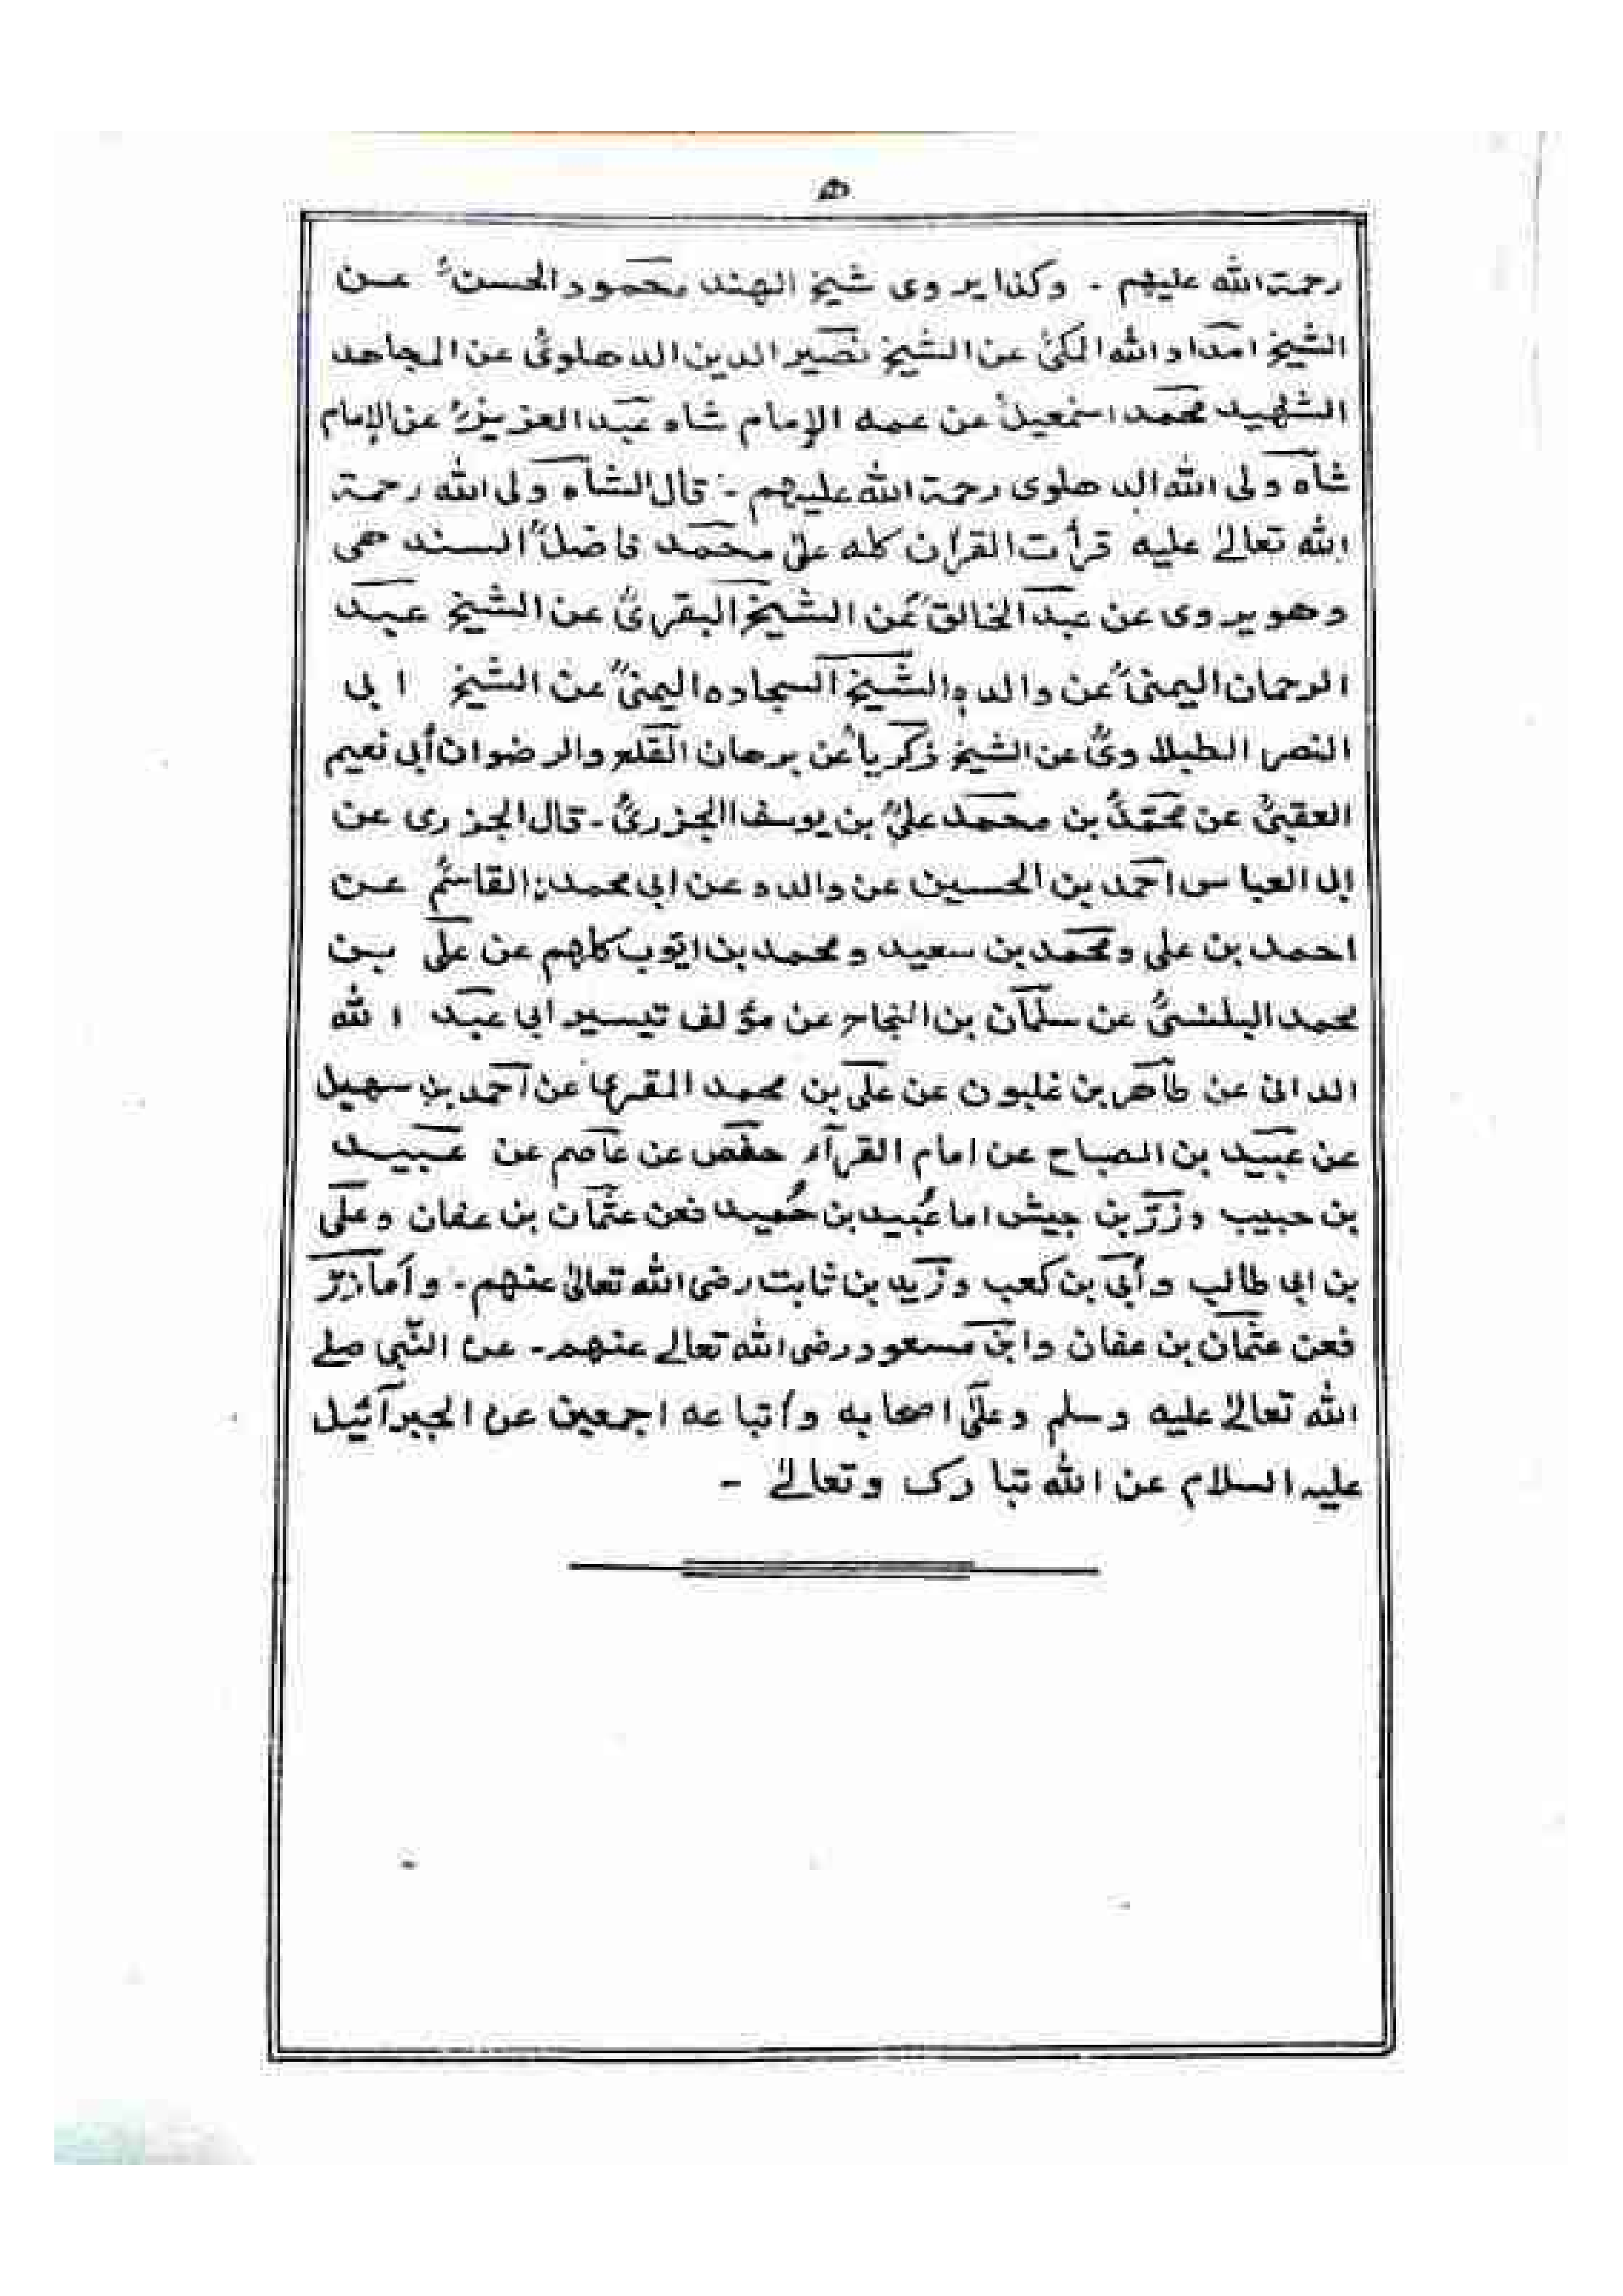 ۵
رحمة الله عليهم - وكذا يروى شيخ الهند محمود الحسنؒ عن
الشيخ امداد الله المكىؒ عن الشيخ نصير الدين الدهلوىؒ عن المجاهد
الشهيد محمد اسمعيلؒ عن عمه الإمام شاه عبد العزيزؒ عن الإمام
شاه ولى الله الدهلوى رحمة الله عليهم - قال الشاه ولى الله رحمة
الله تعالىٰ عليه قرأت القرأن كله على محمد فاضلؒ السندهى
وهو يروى عن عبد الخالقؒ عن الشيخ البقرىؒ عن الشيخ عبد
الرحمان اليمنىؒ عن والده الشيخ السجاده اليمنىؒ عن الشيخ ابى
النصر الطبلاوىؒ عن الشيخ زكرياؒ عن برهان القلعى والرضوان أبى نعيم
العقبىؒ عن محمدؒ بن محمد علىؒ بن يوسف الجزرىؒ - قال الجزرى عن
ابى العباس احمد بن الحسين عن والده عن ابى محمد القاسمؒ عن
احمد بن على ومحمد بن سعيد ومحمد بن ايوب كلهم عن على بن
محمد البلنسىؒ عن سلمان بن النجاح عن مؤلف تيسير ابى عبد الله
الدانى عن طاهر بن غلبون عن على بن محمد عن احمد بن سهيل
عن عبيد بن الصباح عن امام القرآء حفص عن عاصم عن عبيد
بن حبيب وزرّ بن جيش اما عُبيد بن حُميد فعن عثمان بن عفان وعلى
بن ابى طالب وأبى بن كعب وزيد بن ثابت رضى الله تعالىٰ عنهم - وأما زرّ
فعن عثمان بن عفان وابن مسعود رضى الله تعالے عنهم - عن النّبى صلے
الله تعالىٰ عليه وسلم وعلى اصحابه واتباعه اجمعين عن الجبرآئيل
عليه السلام عن الله تبارك وتعالىٰ -